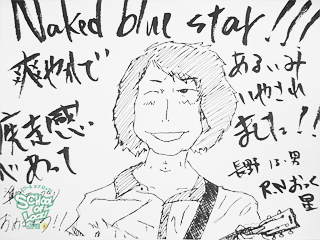 Naked blue star!!!
爽やかで
疾走感
があって
あるいみ
いやされ
ました!!
長野 13・男
R.N おっく
星